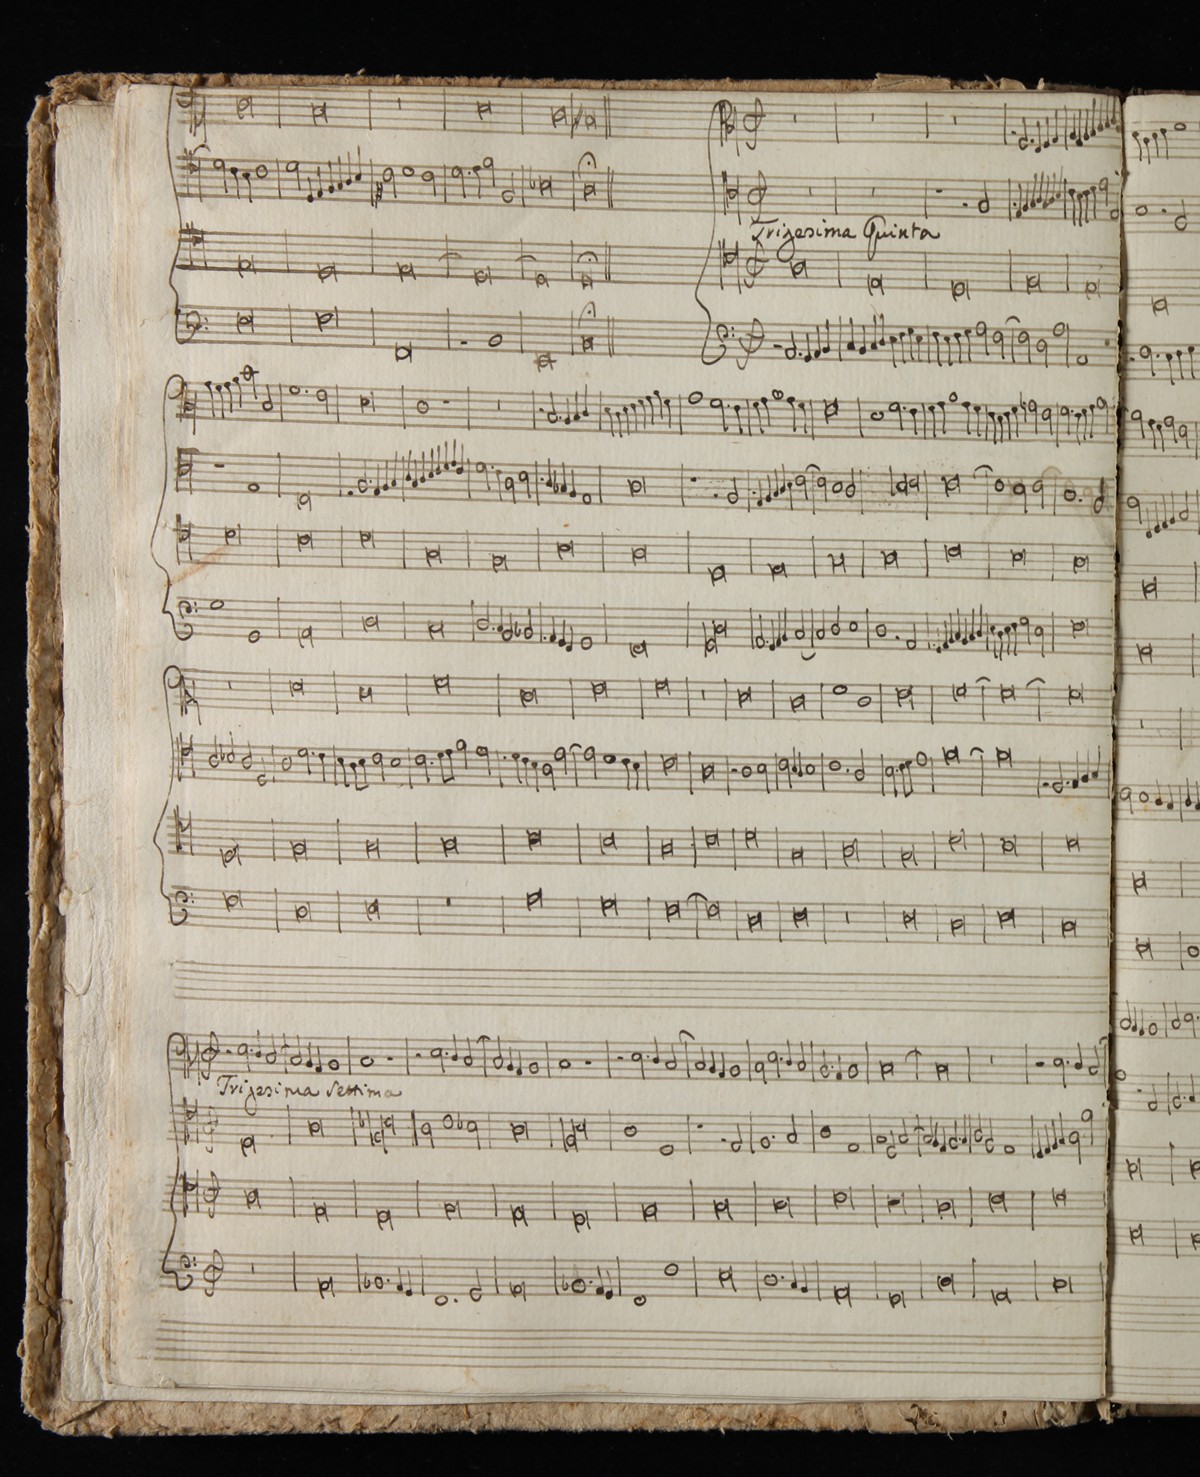 Trigesima Quinta
Trigesima Settima